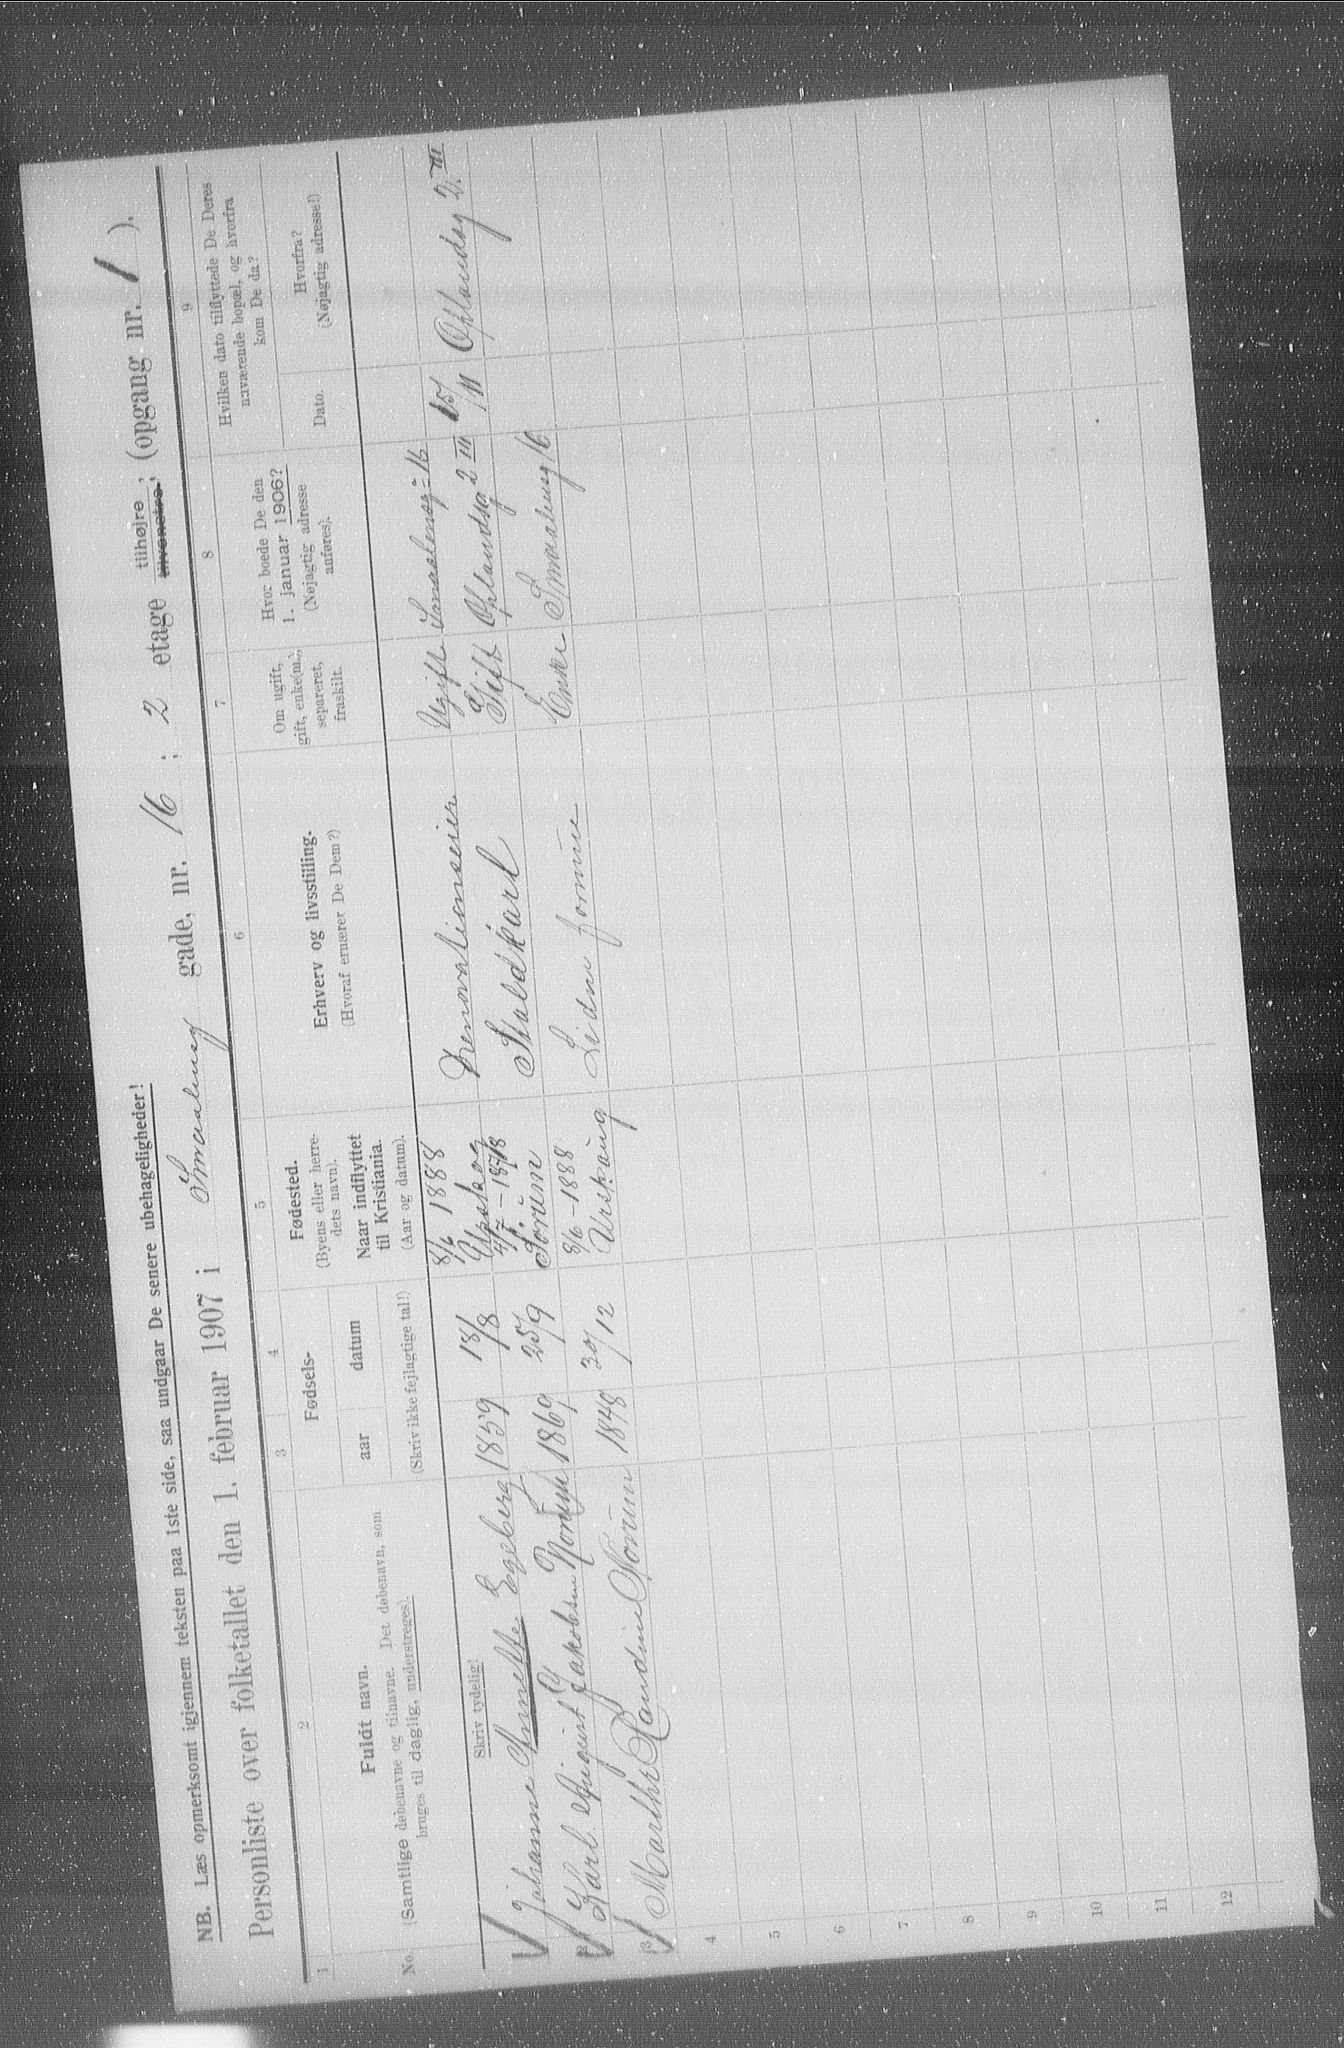 NB. Læs opmerksomt igjennem teksten paa 1ste side, saa undgaar De senere ubehageligheder!
Personliste over folketallet den 1. februar 1907 i Smaalensg gade, nr. 16; 2 etage tilhøjre, tilvenstre, (opgang nr. 1).
1 2 3 4 5 6 7 8 9
No.
Fuldt navn.
(Samtlige døbenavne og tilnavne. Det døbenavn, som
bruges til daglig, understreges).
Fødsels-
aar datum
(Skriv ikke fejlagtige tal!)
Fødested.
(Byens eller herre-
dets navn).
Naar indflyttet
til Kristiania.
(Aar og datum).
Erhverv og livsstilling.
(Hvoraf ernærer De Dem?)
Om ugift,
gift, enke(m.),
separeret,
fraskilt.
Hvor boede De den
1. januar 1906?
(Nøjagtig adresse
anføres).
Hvilken dato tilflyttede De Deres
nuværende bopæl, og hvorfra
kom De da?
Dato.
Hvorfra?
(Nøjagtig adresse!)
Skriv tydelig!
Johanne Annette Egeberg 1859 18/8 8/6 1888 Ugift Smaalensg 16
Karl August Jakobsen 1869 25/9 Sørum Staldkarl Gift Oplandsg 2 III 15/11 Oplandsg 2. III
3 Marthe Randine Norum 1848 30/12 8/6 - 1888 Urskoug Enke Smaalensg 16
4
5
6
7
8
9
10
11
12